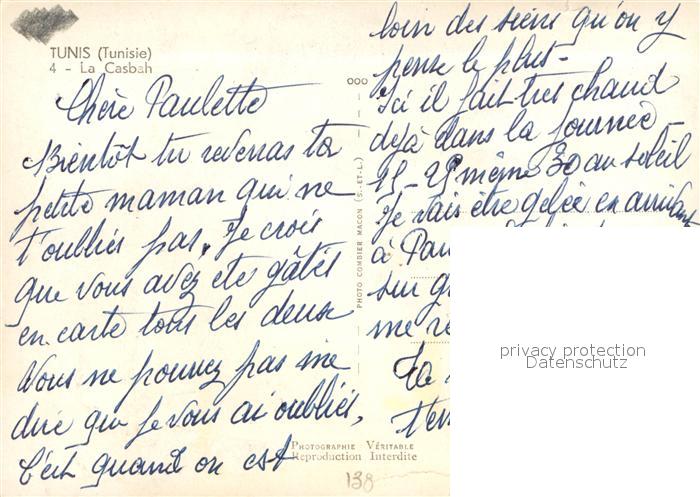 TUNIS (Tunisie)
4 - La Casbah
Chère Paulette
Bientôt tu reverras ta
petite maman qui ne
t'oublies pas. Je crois
que vous avez été gâtés
en carte tous les deux
Vous ne pouvez pas me
dire que je vous ai oubliés,
C'est quand on est
loin des siens qu'on y
pense le plus -
Ici il fait très chaud
déjà dans la journée -
25 - 29 même 30 au soleil
Je vais être gelée en arrivant
à
sur
me
t'em
PHOTO COMBIER MACON (S.-ET-L.)
PHOTOGRAPHIE VÉRITABLE
Reproduction Interdite
138
privacy protection
Datenschutz